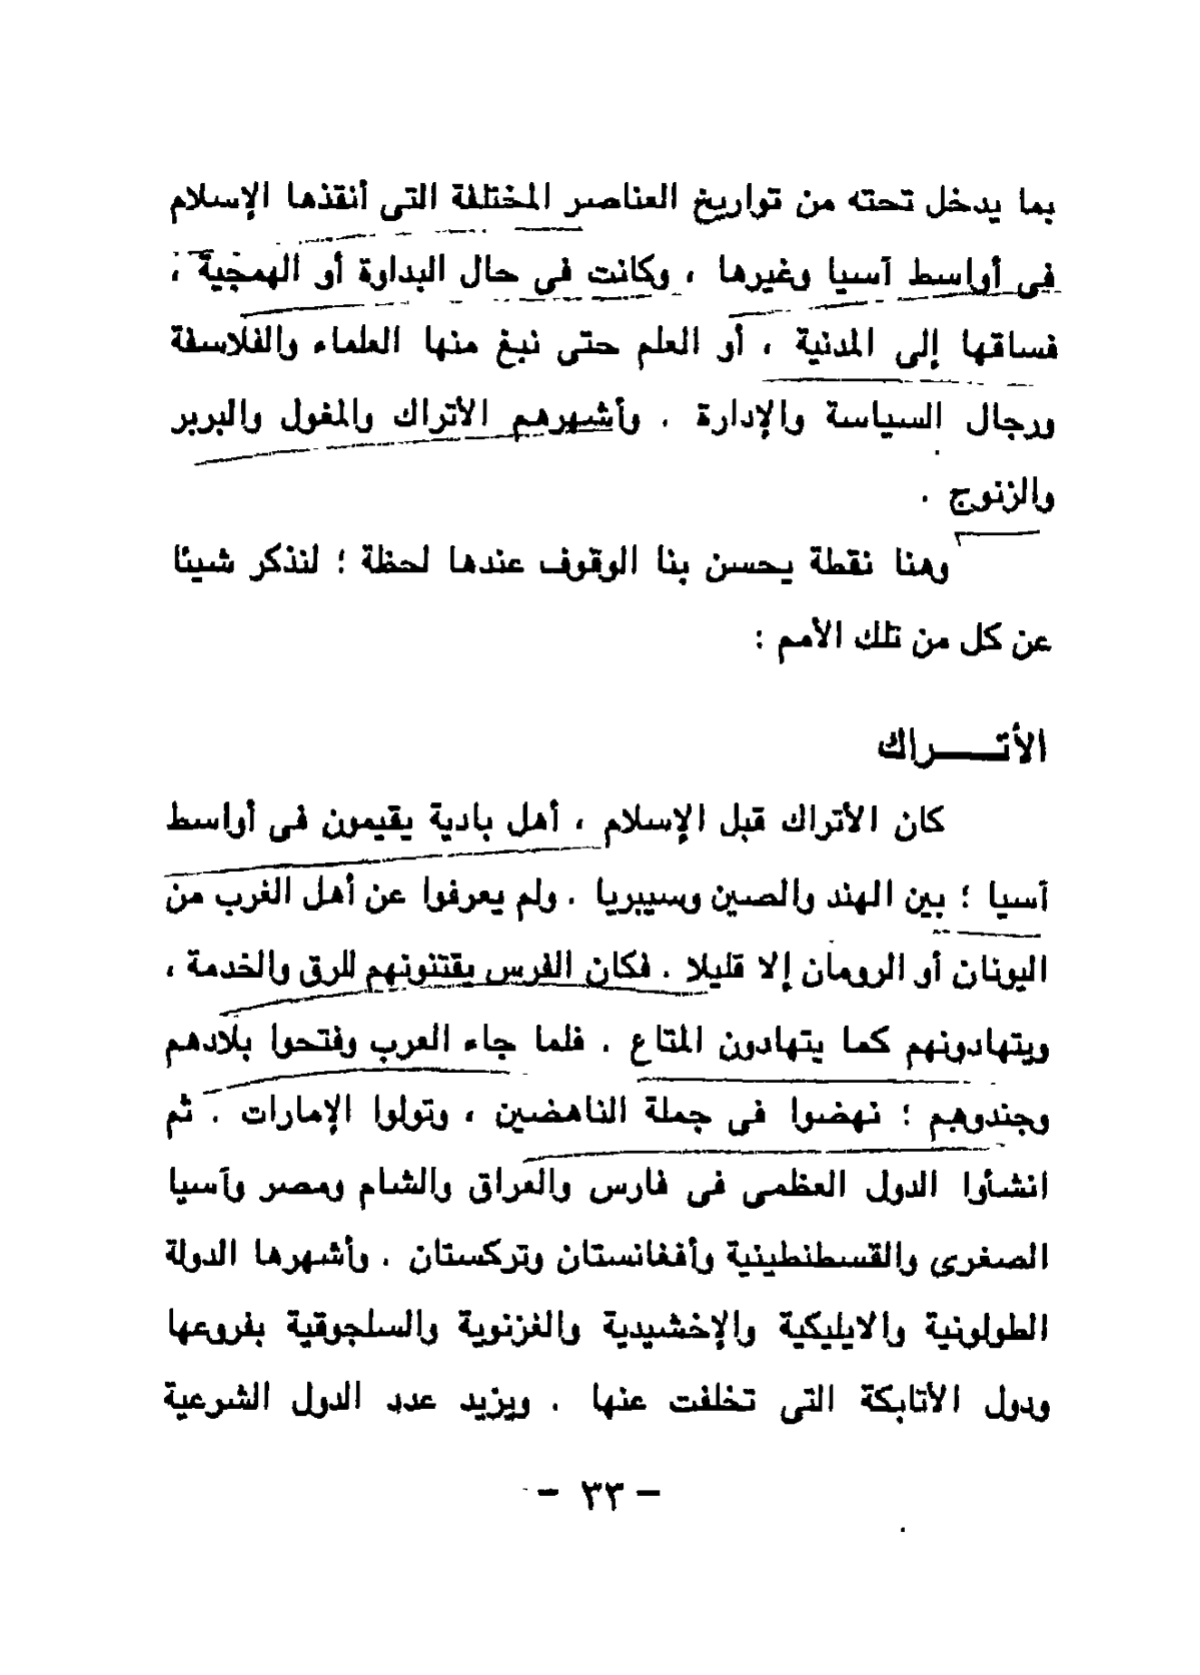 بما يدخل تحته من تواريخ العناصر المختلفة التى أنقذها الإسلام
فى أواسط آسيا وغيرها ، وكانت فى حال البداوة أو الهمجية ،
فساقها إلى المدنية ، أو العلم حتى نبغ منها العلماء والفلاسفة
ورجال السياسة والإدارة . وأشهرهم الأتراك والمغول والبربر
والزنوج .
وهنا نقطة يحسن بنا الوقوف عندها لحظة ؛ لنذكر شيئا
عن كل من تلك الأمم :
الأتــــراك
كان الأتراك قبل الإسلام ، أهل بادية يقيمون فى أواسط
آسيا ؛ بين الهند والصين وسيبريا . ولم يعرفوا عن أهل الغرب من
اليونان أو الرومان إلا قليلا . فكان الفرس يقتنونهم للرق والخدمة ،
ويتهادونهم كما يتهادون المتاع . فلما جاء العرب وفتحوا بلادهم
وجندوهم ؛ نهضوا فى جملة الناهضين ، وتولوا الإمارات . ثم
انشأوا الدول العظمى فى فارس والعراق والشام ومصر وآسيا
الصغرى والقسطنطينية وأفغانستان وتركستان . وأشهرها الدولة
الطولونية والايليكية والإخشيدية والغزنوية والسلجوقية بفروعها
ودول الأتابكة التى تخلفت عنها . ويزيد عدد الدول الشرعية
– ٣٣ –